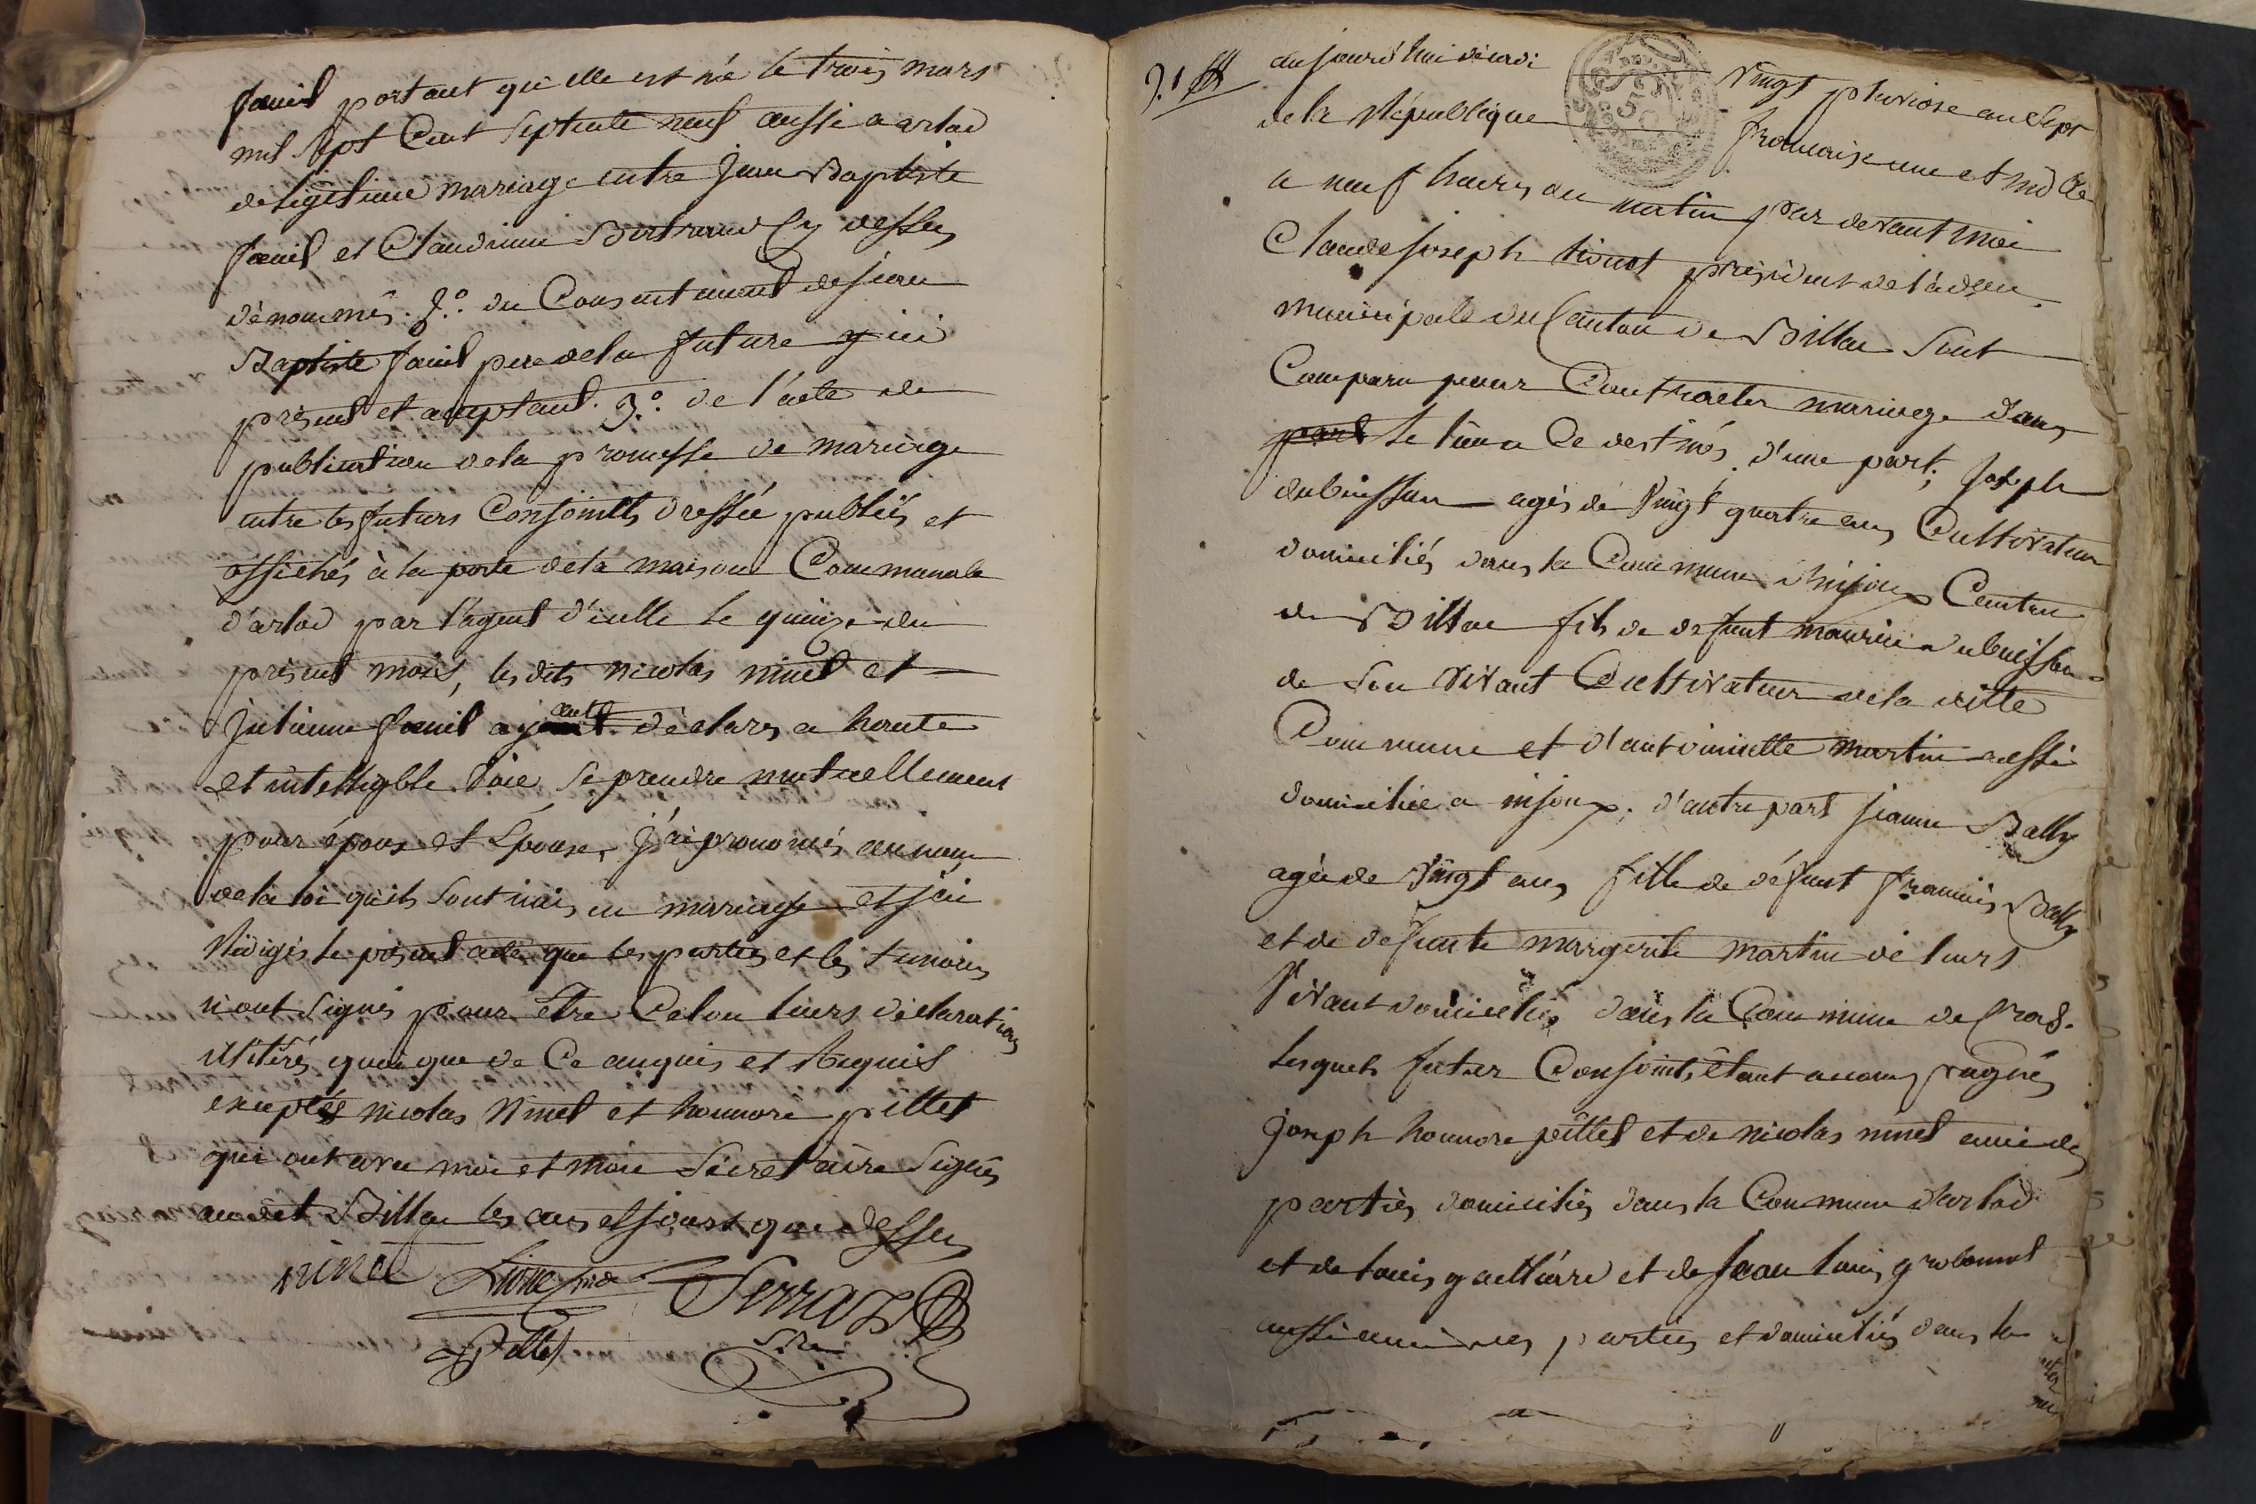 fauit portant qu'elle est née le trois mars
mil sept Cent septente neuf aussi a arlod
de légitime mariage entre jean Baptiste
fauit et Claudinne Bertrand Cy dessus
dénommés. 2.º du Consentement de jean
Baptiste fauit pere de la future y ici
présent et aceptant. 3.º de l'acte de
publication de la promesse de mariage
entre les futurs Conjoints dressée publiés et
affichés à la porte de la maison Communale
d'arlod par l'agent d'icelle le quinze du
présent mois, les dits nicolas ninet et
julienne fauit ayant déclarés a haute
et intelligible voie se prendre mutuellement
pour époux et Epouse, j'ai prononcés au nom
de la loi qu'ils sont unis en mariage et j'ai
Rédigés le présent acte que les parties et les témoins
n'ont signés pour être Celon leurs déclarations
illitérés quoi que de Ce anquis et Requis
exceptés nicolas Ninet et honnore pittet
qui ont avec moi et mon Sécretaire signés
audit Billa les ans et jours que dessus
ninet
Serraz
Sre
Pittet
aujourd'hui décadi vingt pluviose an sept
de la République francaise une et ind ble
a neuf heures du matin par devant moi
Claude joseph président de l'adon
municipale du Canton de Billa Sont
Comparu pour Contracter mariage dans
part le lieu a Ce destinés. d'une part; Joseph
dubuisson agés de vingt quatre ans Cultivateur
domiciliés dans la Commune d'injoux Canton
de Billa fils de defunt maurice dubuisson
de Son vivant Cultivateur de la ditte
Commune et d'antoinette martin aussi
domiciliée a injoux; d'autre part jeanne Bally
agée de vingt ans fille de défunt francois Bally
et de defunte margerite martin de leurs
vivant domiciliés dans la Commune de
lesquels futur Conjoints étant accompagnés
Joseph honnore pittet et de nicolas ninet amis des
parties domiciliés dans la Commune d'arlod
et de louis et de Jean louis grobonnet
aussi amis des parties et domiciliés dans la